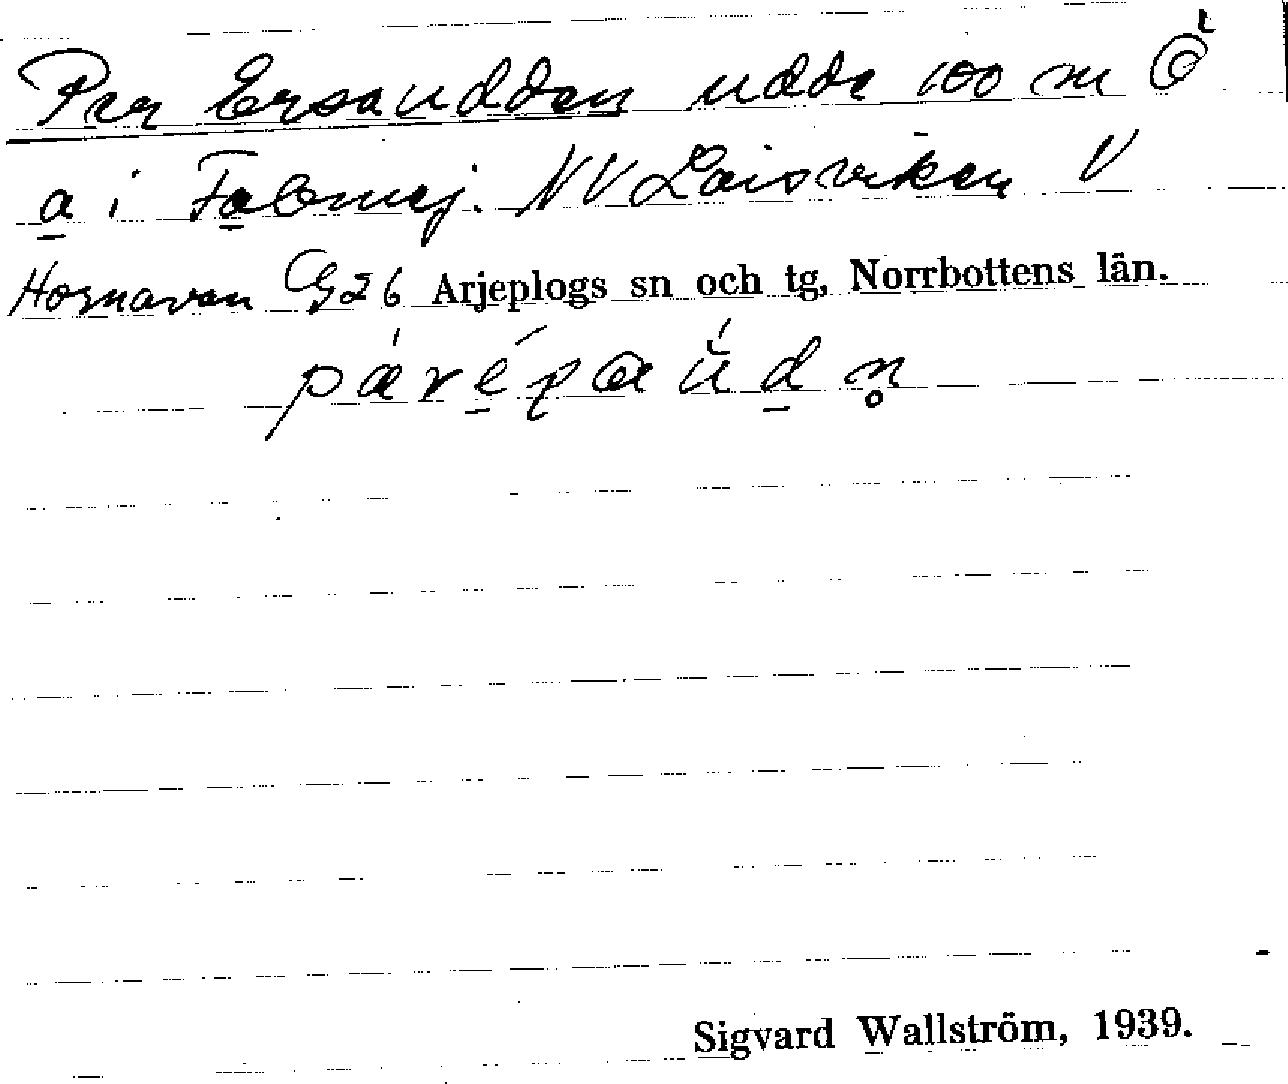 Per Ersaudden udde 100 m Ö
a i Fabmej. NV Laisviken V
Hornavan G26 Arjeplogs sn och tg, Norrbottens län.
Sigvard Wallström, 1939.